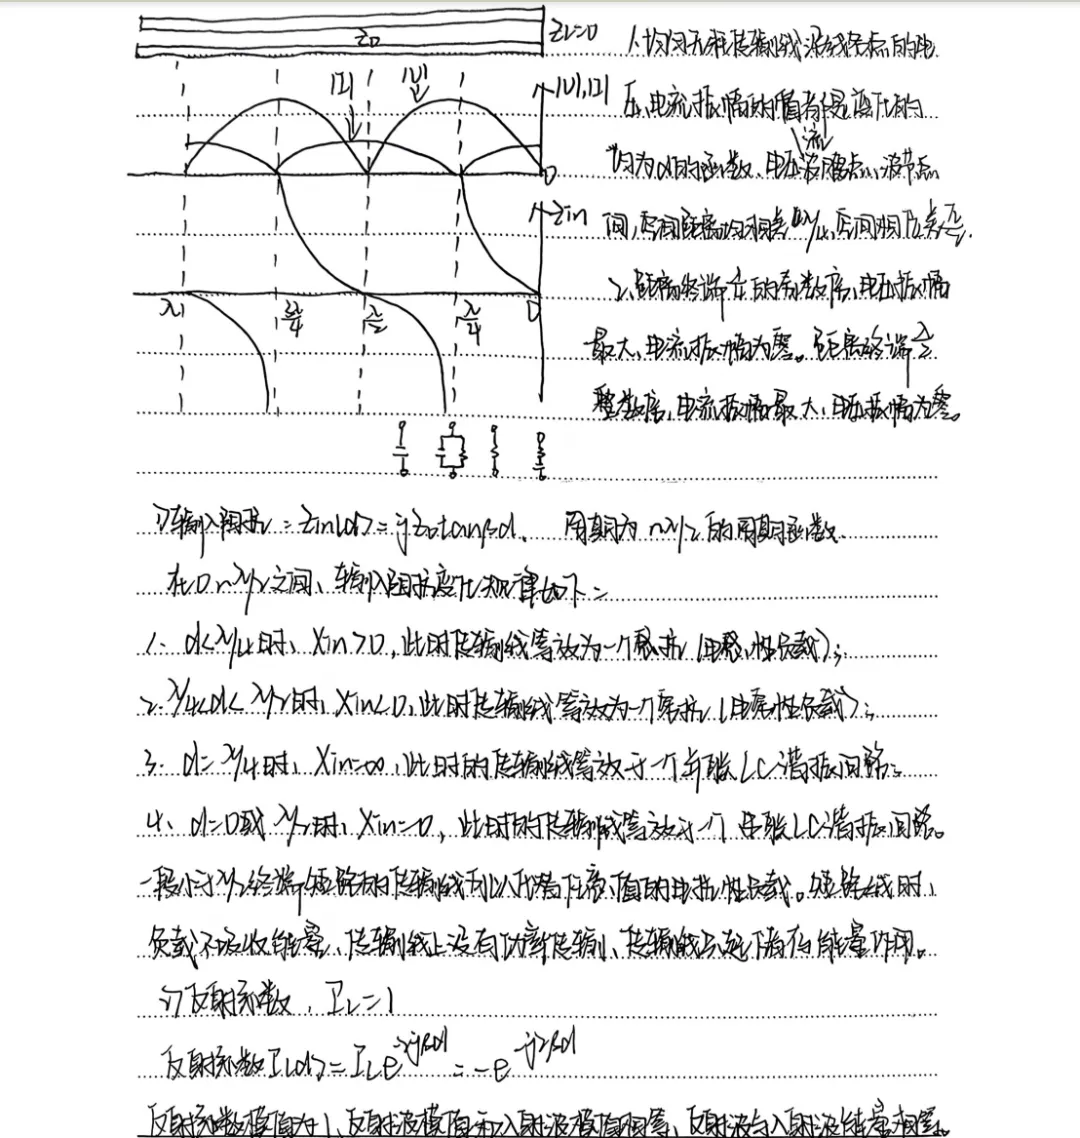 Z₀ ZL=0
|I| |U| |U|,|I|
0
Zin
λ 3λ/4 λ/2 λ/4 0
1、均匀无耗传输线沿线各点的电
压、电流振幅的值者是变化的
均为d的函数、电压波腹点、波节点
流
间,空间距离均相差λ/4,时间相位差π/2.
2、距离终端λ/4的奇数倍,电压振幅
最大、电流振幅为零。距离终端λ/2
整数倍,电流振幅最大,电压振幅为零。
输入阻抗:Zin(d)=jZ₀tanβd、 周期为nλ/2的周期函数.
在0~λ/2之间、输入阻抗变化规律如下:
1、d<λ/4时、Xin>0,此时传输线等效为一个感抗(电感性负载);
2、λ/4<d<λ/2时,Xin<0,此时传输线等效为一个容抗(电容性负载);
3、d=λ/4时、Xin=∞,此时的传输线等效于一个并联LC谐振回路;
4、d=0或λ/2时、Xin=0,此时的传输线等效于一个串联LC谐振回路。
一段小于λ/2终端短路的传输线可以代替任意值的电抗性负载。短路线时,
负载不吸收能量、传输线上没有功率传输、传输线只起储存能量作用。
反射系数,ΓL=1
反射系数Γ(d)=ΓLe^-2jβd=-e^-j2βd
反射系数模值为1、反射波模值和入射波模值相等、反射波与入射波能量相等。